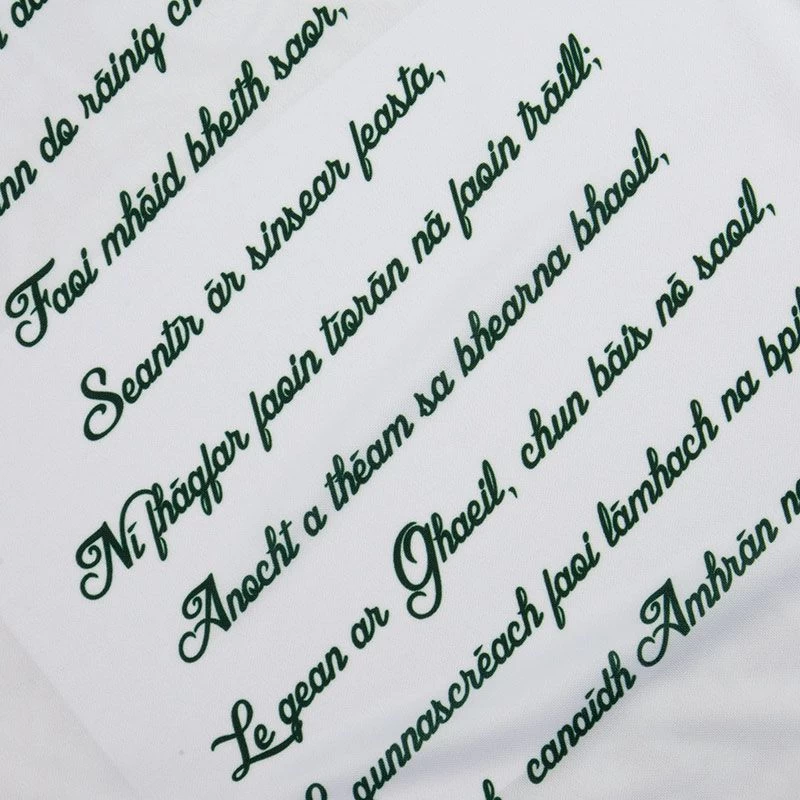 do ráinig
Faoi mhóid bheith saor,
Seantír ár sinsear feasta,
Ní fhágfar faoin tíorán ná faoin tráill;
Anocht a théam sa bhearna bhaoil,
Le gean ar Ghaeil, chun báis nó saoil,
gunnascréach faoi lámhach na
canaídh Amhrán